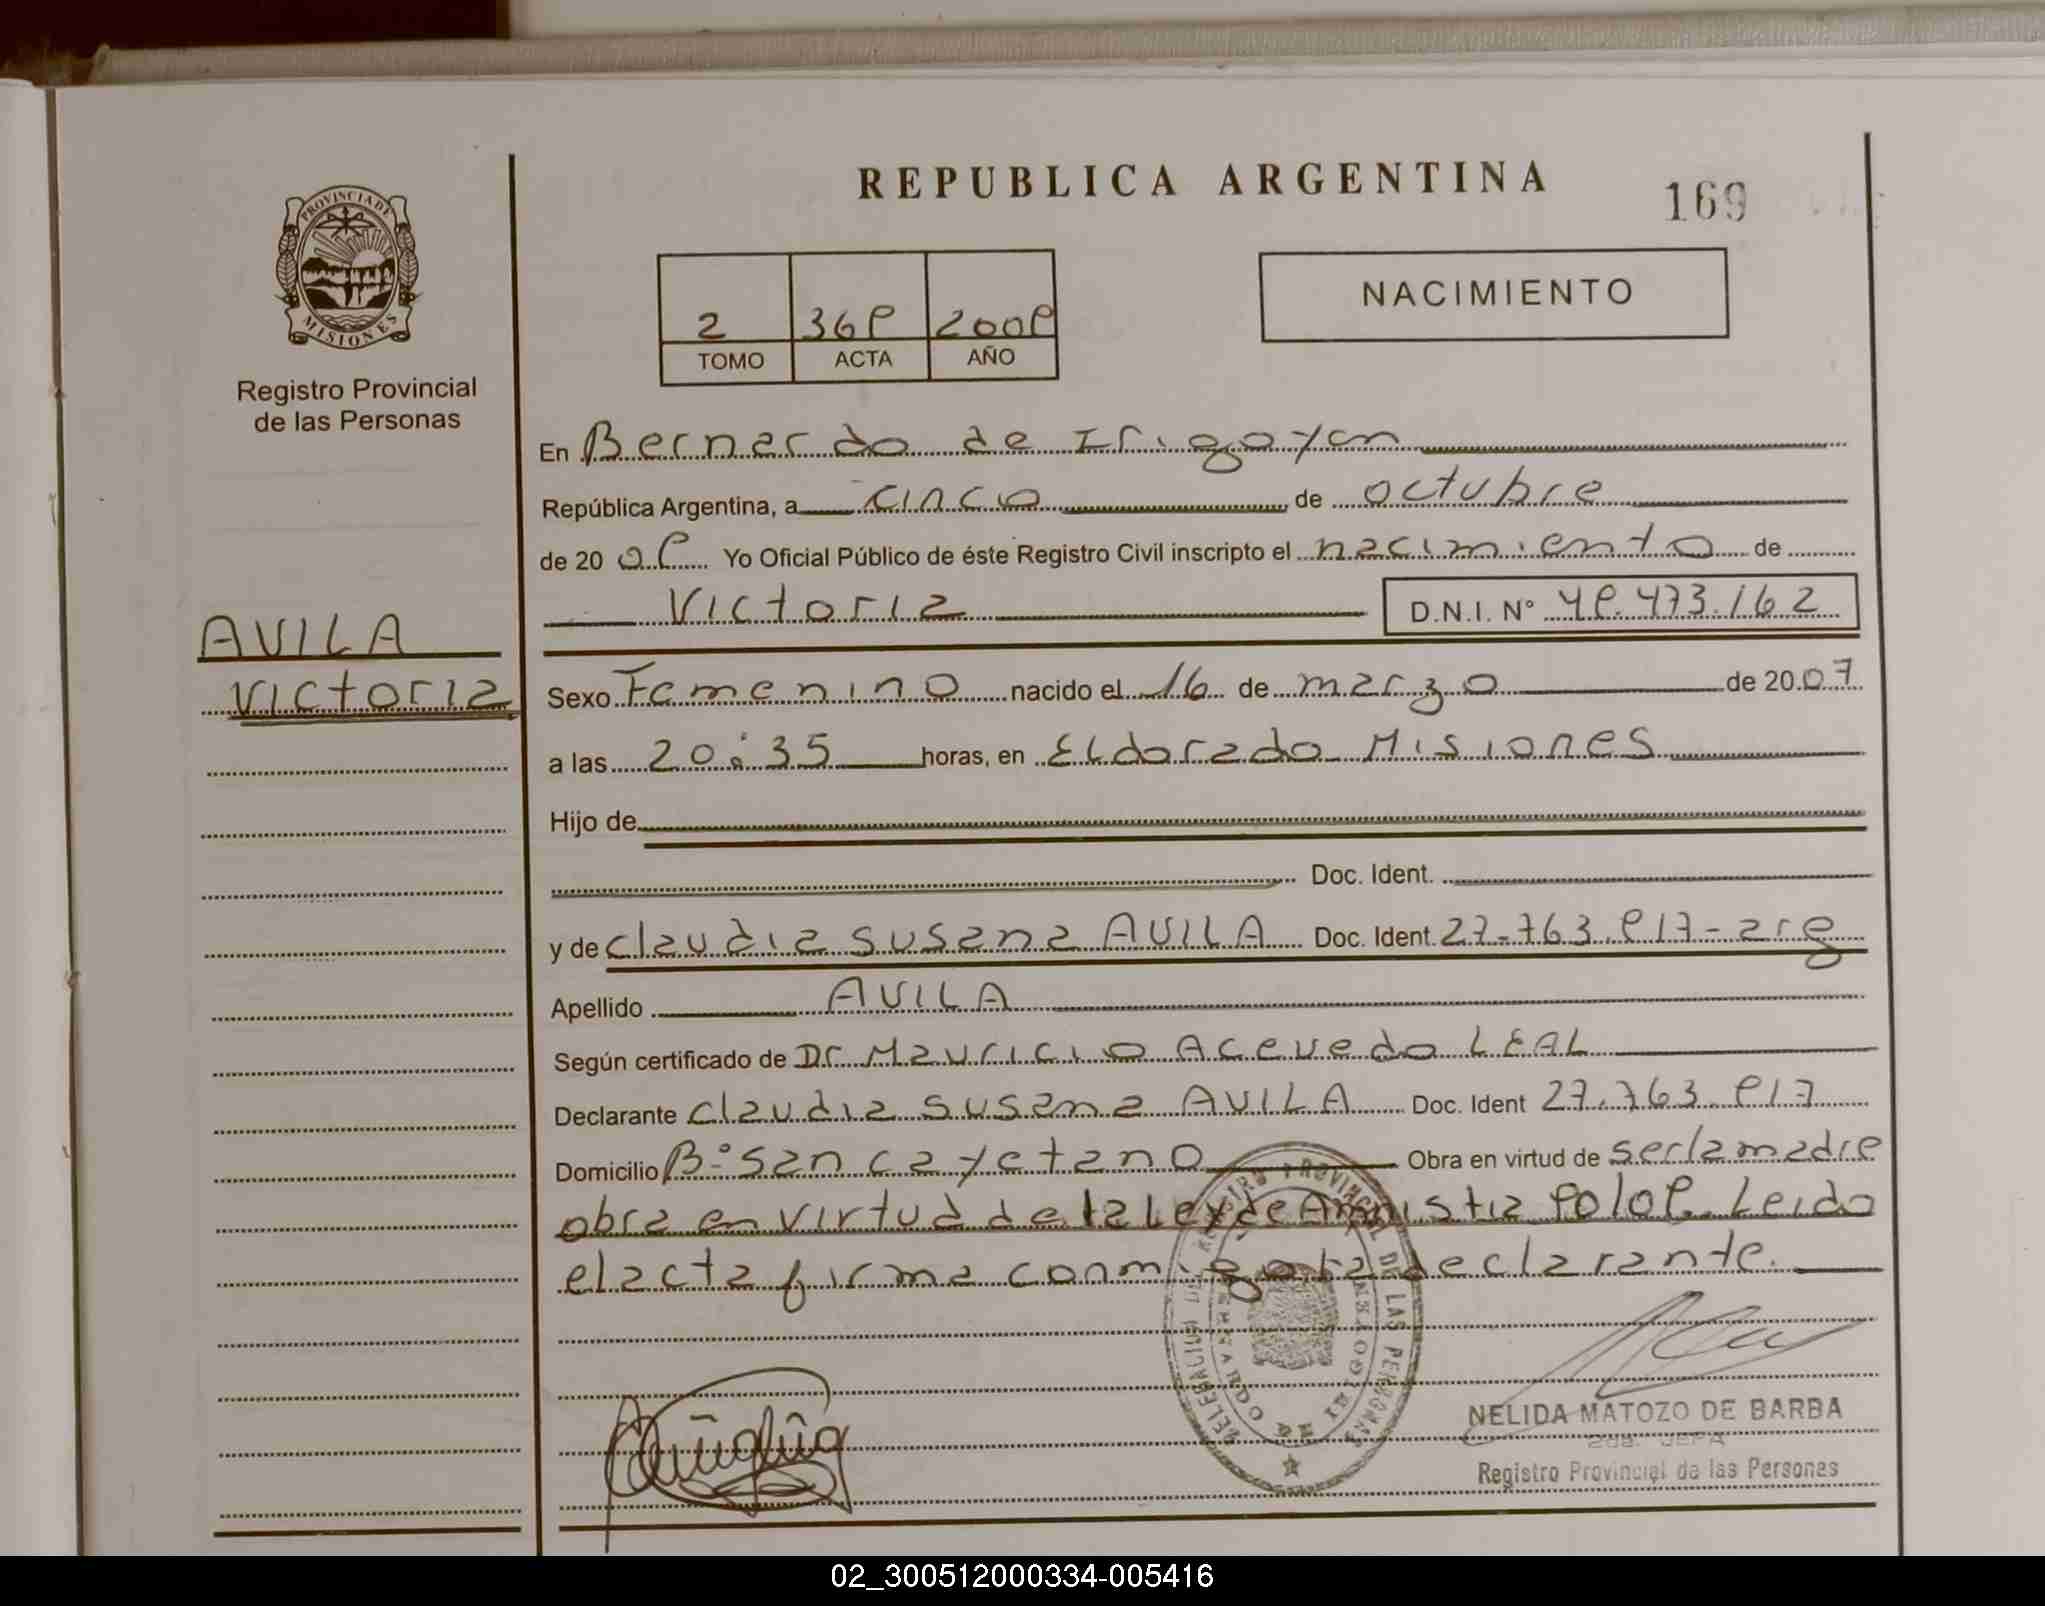 PROVINCIA DE
MISIONES
Registro Provincial
de las Personas
REPUBLICA ARGENTINA
169
NACIMIENTO
2 368 2008
TOMO ACTA AÑO
En Bernardo de Irigoyen
República Argentina, a cinco de octubre
de 20 08 Yo Oficial Público de éste Registro Civil inscripto el nacimiento de
Victoria D.N.I. N° 48.473.162
AVILA
Victoria
Sexo Femenino nacido el 16 de marzo de 20 07
a las 20:35 horas, en Eldorado Misiones
Hijo de
Doc. Ident.
y de Claudia Susana AVILA Doc. Ident. 27.763.817-arg
Apellido AVILA
Según certificado de Dr Mauricio Acevedo LEAL
Declarante Claudia Susana AVILA Doc. Ident 27.763.817
Domicilio B° San Cayetano Obra en virtud de ser la madre
obra en virtud de la Ley de Amnistia Leido
el acta firma conmigo la declarante.
REGISTRO PROVINCIAL DE LAS PERSONAS
BERNARDO DE IRIGOYEN
NELIDA MATOZO DE BARBA
2da. JEFA
Registro Provincial de las Personas
02_300512000334-005416